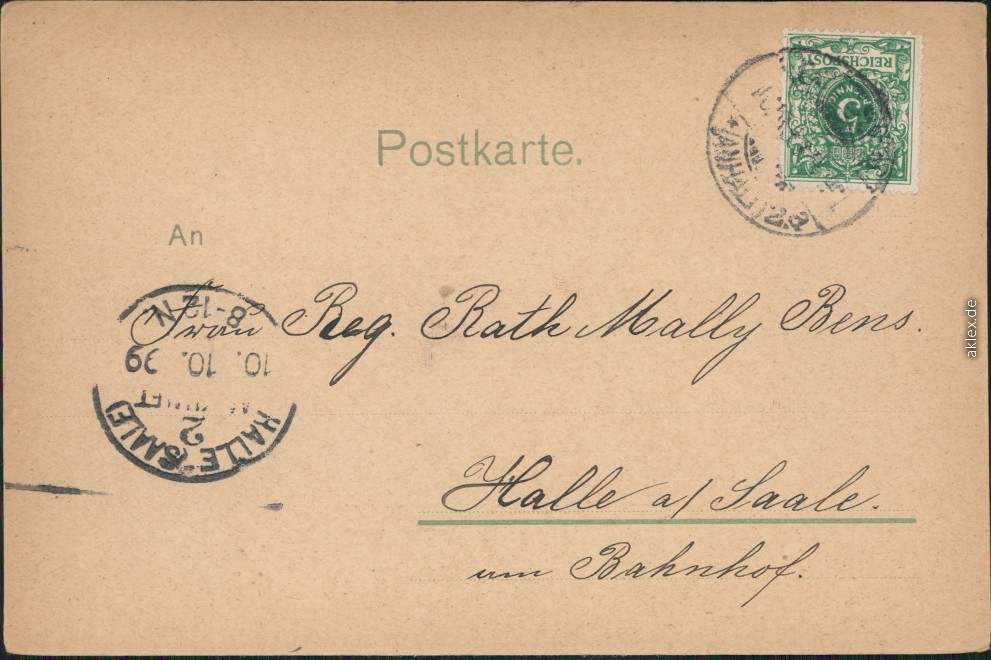 REICHSPOST
5
(ANHALT)
Postkarte.
An
8-12 N
10. 10. 99
2
HALLE (SAALE)
Frau Reg. Rath Mally Bens.
Halle a/ Saale.
am Bahnhof.
aklex.de